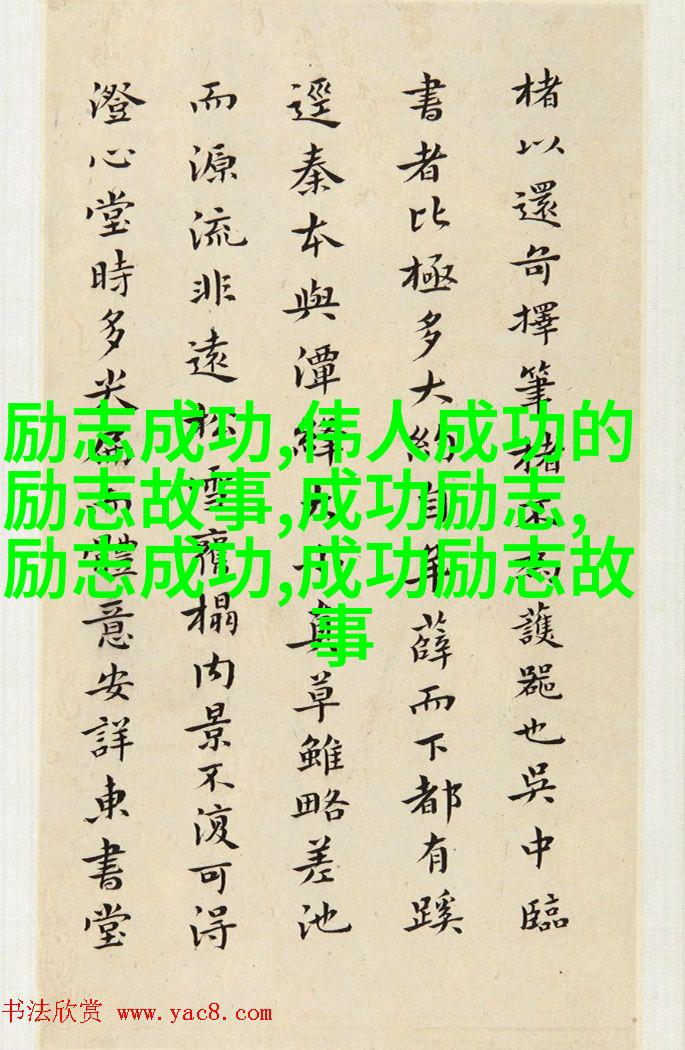 楮以還擇筆楮護器也吳中臨
書者比極多大約自年薛而下都有蹊
逕秦本與潭絳真草雖略差池
而源流非遠松雪榻内景不復可得
澄心堂時多體意安詳東書堂
励志成功,伟人成功的
励志故事,成功励志,
励志成功,成功励志故
事
书法欣赏 www.yac8.com